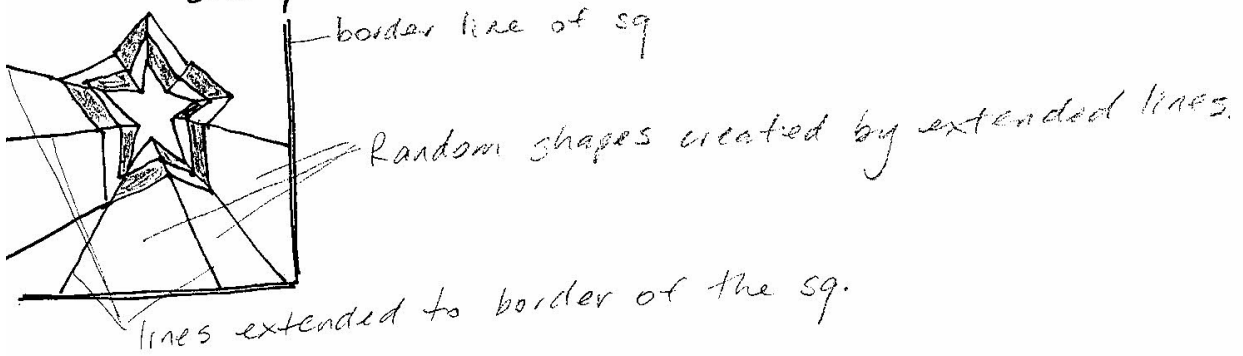 border line of sq
Random shapes created by extended lines.
lines extended to border of the sq.